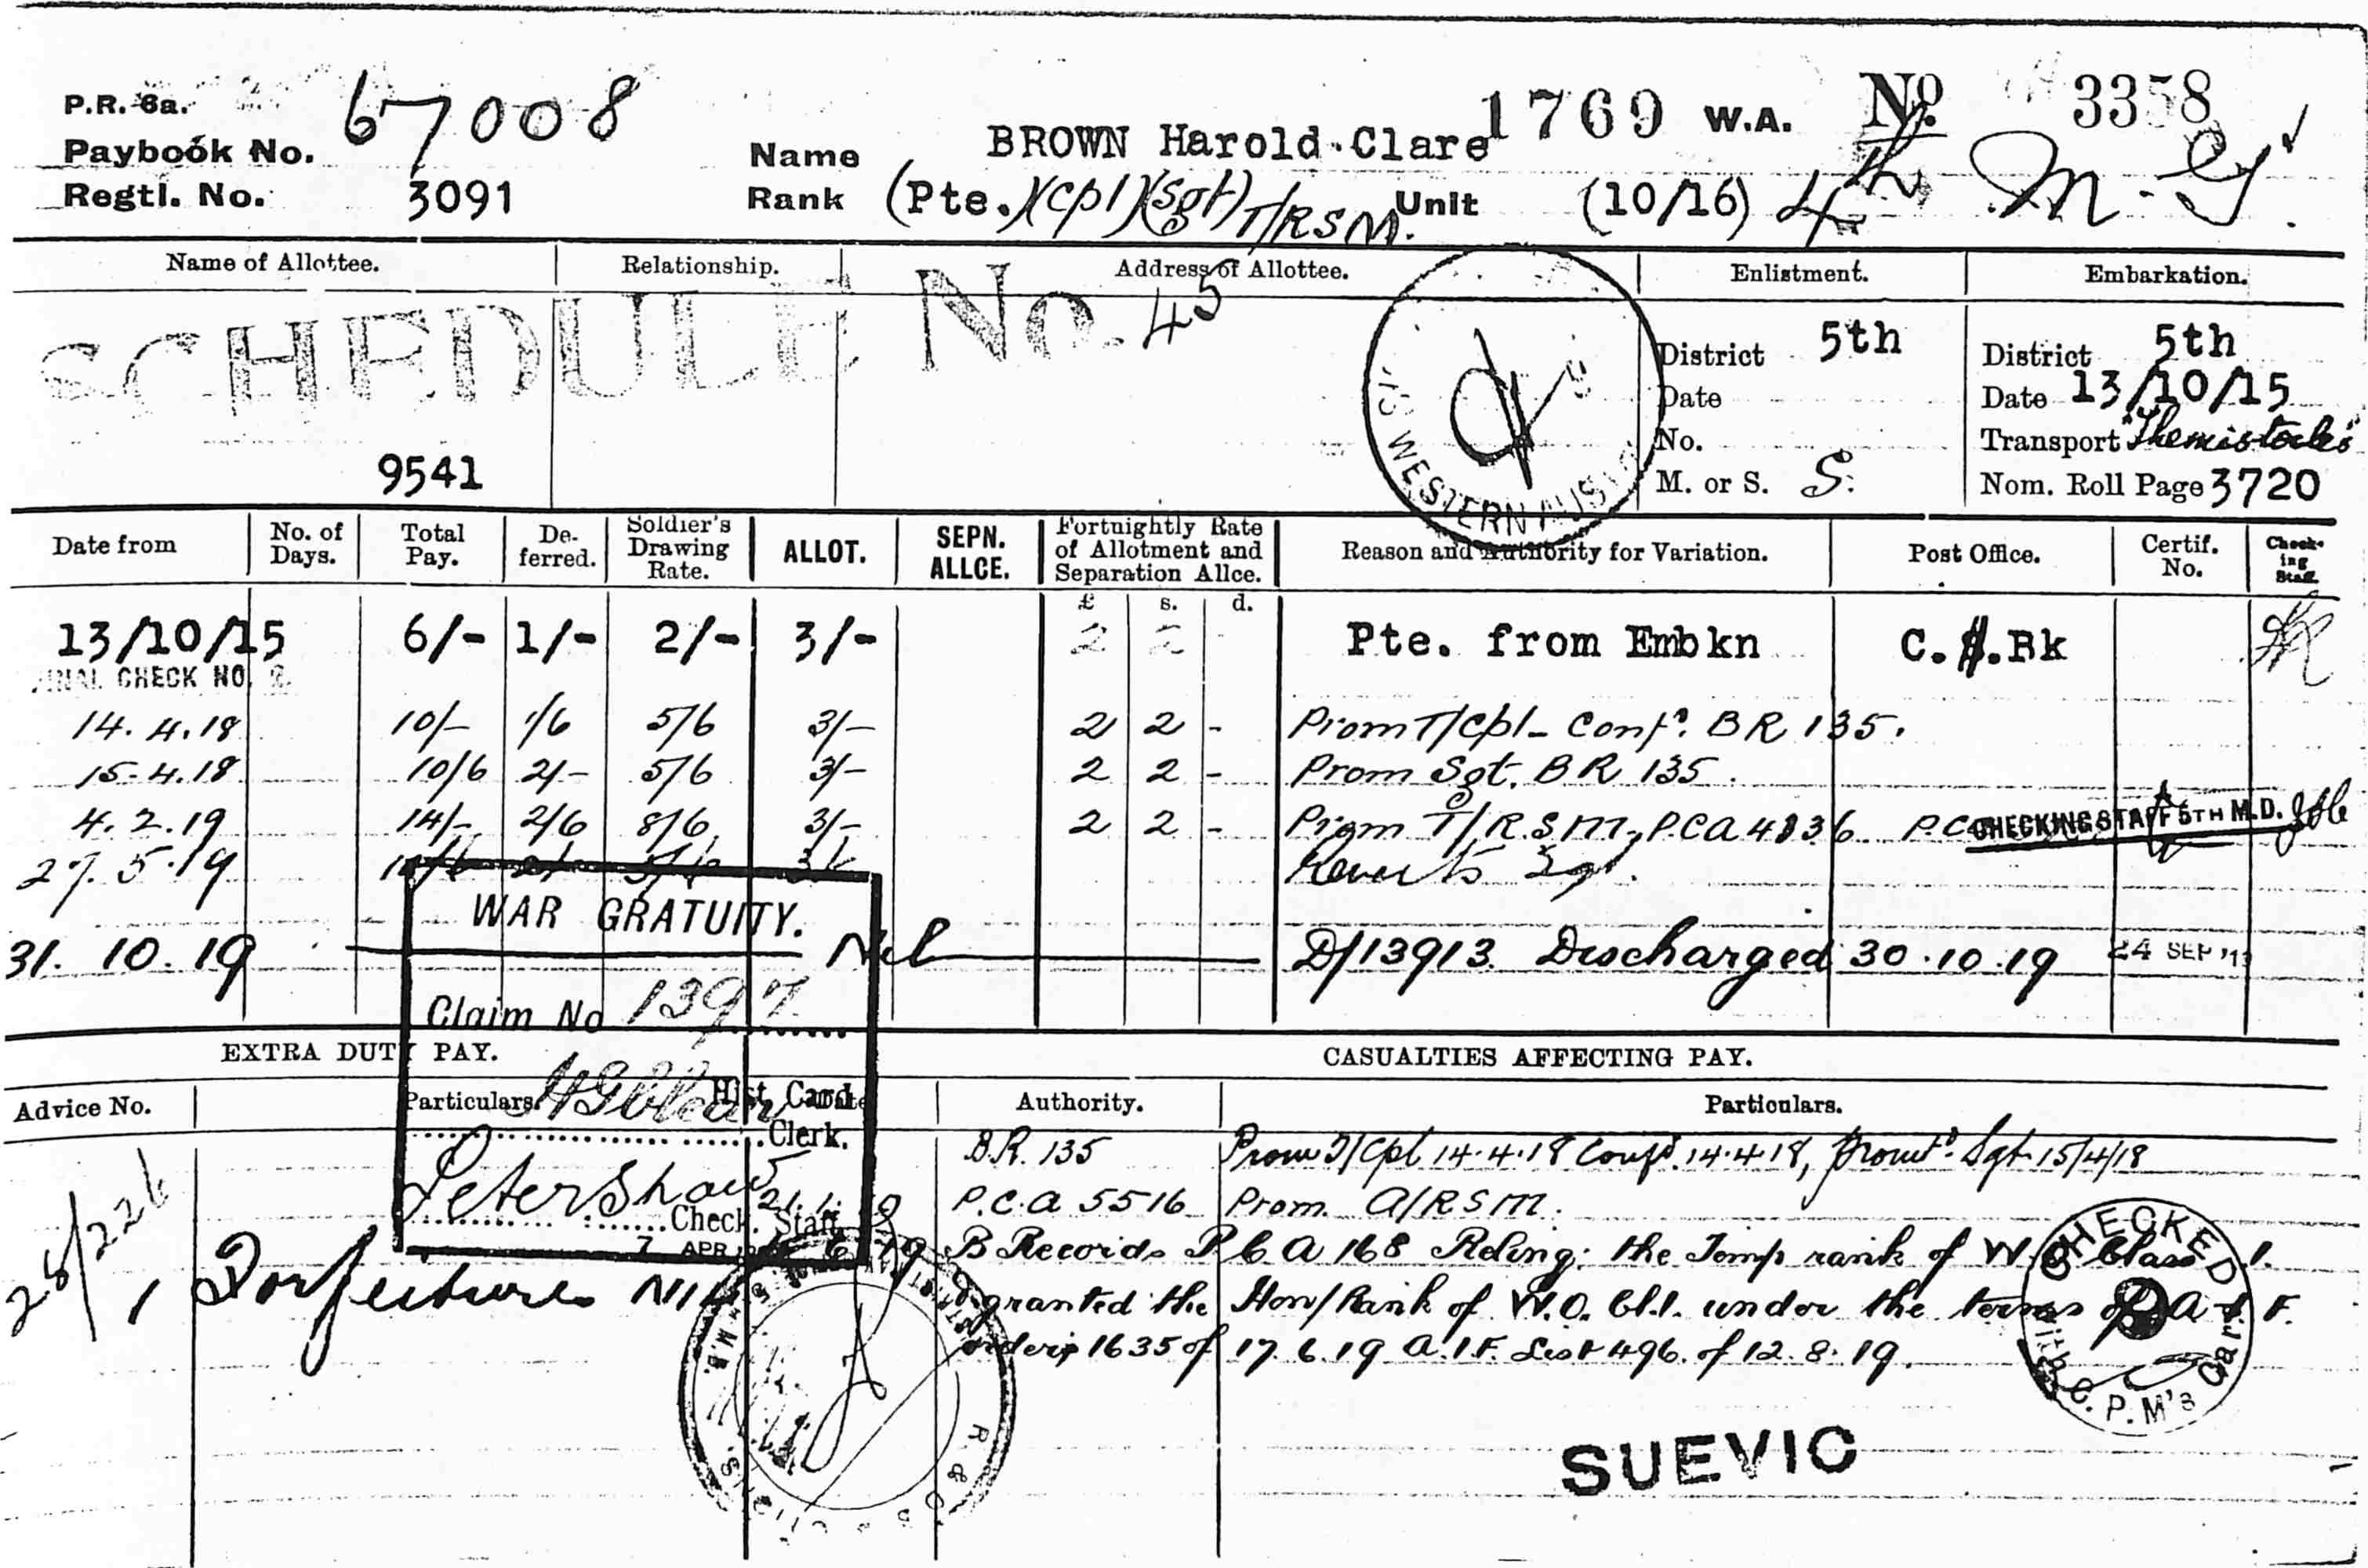 P.R. 6a. 67008 1769 W.A. No 3358
Paybook No. Name BROWN Harold Clare
Regtl. No. 3091 Rank (Pte.)(Cpl)(Sgt) T/RSM. Unit (10/16) 4th M.G.
Name of Allottee. Relationship. Address of Allottee. Enlistment. Embarkation.
SCHEDULE No. 45
District 5th District 5th
Date Date 13/10/15
No. Transport "Themistocles"
9541 M. or S. S. Nom. Roll Page 3720
WESTERN AUST
Date from No. of Days. Total Pay. De-ferred. Soldier's Drawing Rate. ALLOT. SEPN. ALLCE. Fortnightly Rate of Allotment and Separation Allce. Reason and Authority for Variation. Post Office. Certif. No. Check-ing Staff.
£ s. d.
13/10/15 6/- 1/- 2/- 3/- 2 2 - Pte. from Embkn C. .Bk
CHECK NO. 2.
14.4.18 10/- 1/6 5/6 3/- 2 2 - Prom T/Cpl - Conf'd. BR 135.
15.4.18 10/6 2/- 5/6 3/- 2 2 - Prom Sgt. BR 135.
4.2.19 14/- 2/6 8/6 3/- 2 2 - Prom T/R.S.M. P.CA 4836 CHECKING STAFF 5TH M.D.
27.5.19 Reverts Sgt.
31.10.19 Nil D/13913. Discharged 30.10.19 24 SEP
WAR GRATUITY.
Claim No 1397
Hist. Card
Clerk.
Peter Shaw
Check. Staff
7 APR
EXTRA DUTY PAY. CASUALTIES AFFECTING PAY.
Advice No. Particulars. Authority. Particulars.
B.R. 135 Prom T/Cpl 14.4.18 Confd. 14.4.18, Promtd. Sgt 15/4/18
P.C.A 5516 Prom. A/RSM.
28/226 B Records P C A 168 Relinq: the Temp rank of W.O. Class 1.
1 Forfeitures Nil granted the Hon/Rank of W.O. Cl.1. under the terms of A.I.F.
order 1635 of 17.6.19 A.I.F. List 496. of 12.8.19.
CHECKED with C.P.M's Card
SUEVIC